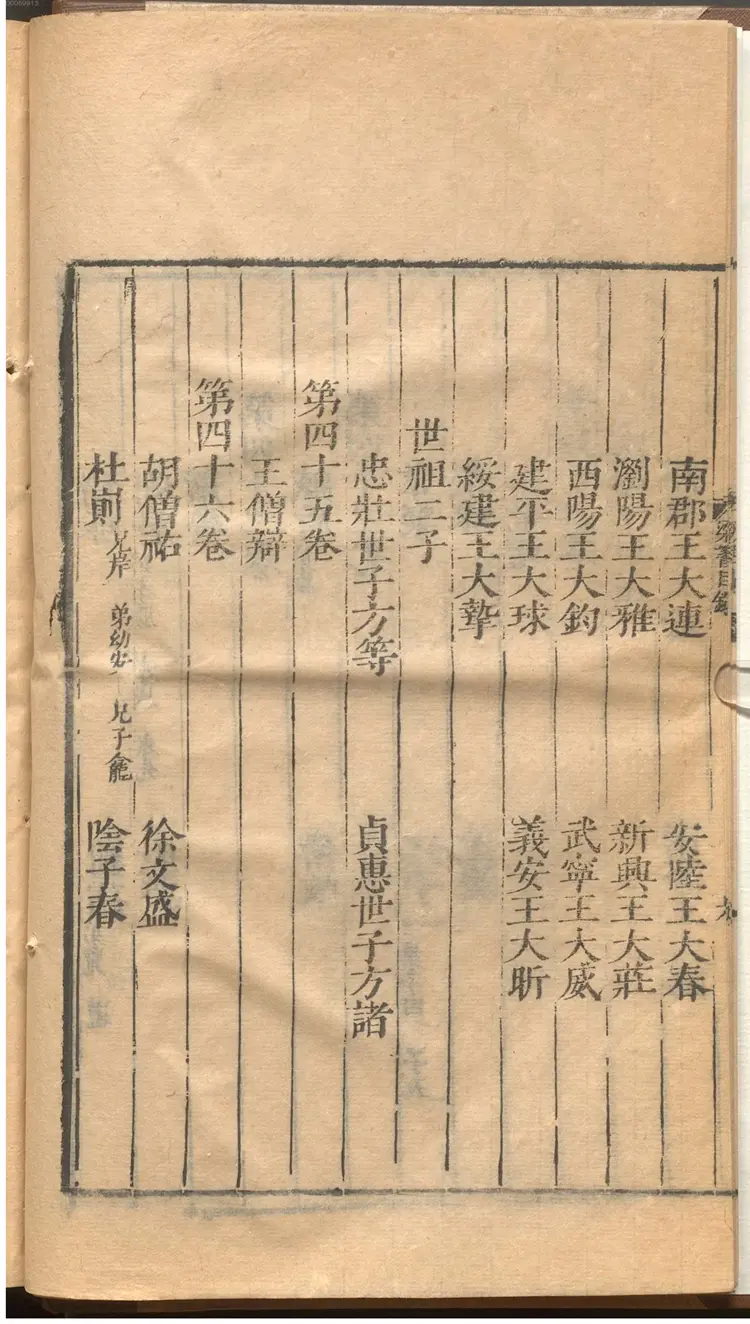 南郡王大連 安陸王大春
瀏陽王大雅 新興王大莊
西陽王大鈞 武寧王大威
建平王大球 義安王大昕
綏建王大摯
世祖二子
忠壯世子方等 貞惠世子方諸
第四十五卷
王僧辯
第四十六卷
胡僧祐 徐文盛
杜崱 兄岸 弟幼安 兄子龕 陰子春
梁書目錄